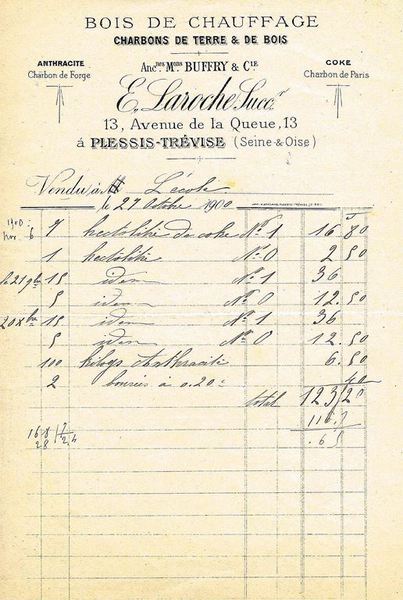 BOIS DE CHAUFFAGE
CHARBONS DE TERRE & DE BOIS
ANTHRACITE
Charbon de Forge
Anc.nes M.ons BUFFRY & C.IE
COKE
Charbon de Paris
E. Laroche Succ.r
13, Avenue de la Queue, 13
á PLESSIS-TRÉVISE (Seine-&-Oise)
Vendu à M L'école
le 27 Octobre 1900
1900
Nov. 6 7 hectolitre de coke No 1 16 80
1 hectolitre No 0 2 50
le 21 9bre 15 idem No 1 36
5 idem No 0 12.50
20 Xbre 15 idem No 1 36
5 idem No 0 12.50
100 kilogs Anthracite 6.50
2 bourrées à 0.20c 40
total 123 20
168 7
28 24